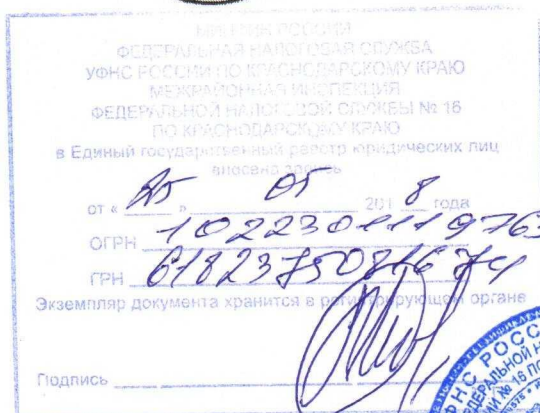 МИНФИН РОССИИ
ФЕДЕРАЛЬНАЯ НАЛОГОВАЯ СЛУЖБА
УФНС РОССИИ ПО КРАСНОДАРСКОМУ КРАЮ
МЕЖРАЙОННАЯ ИНСПЕКЦИЯ
ФЕДЕРАЛЬНОЙ НАЛОГОВОЙ СЛУЖБЫ № 16
ПО КРАСНОДАРСКОМУ КРАЮ
в Единый государственный реестр юридических лиц
внесена запись
от « 25 » 05 201 8 года
ОГРН 1022301119763
ГРН
Экземпляр документа хранится в регистрирующем органе
Подпись